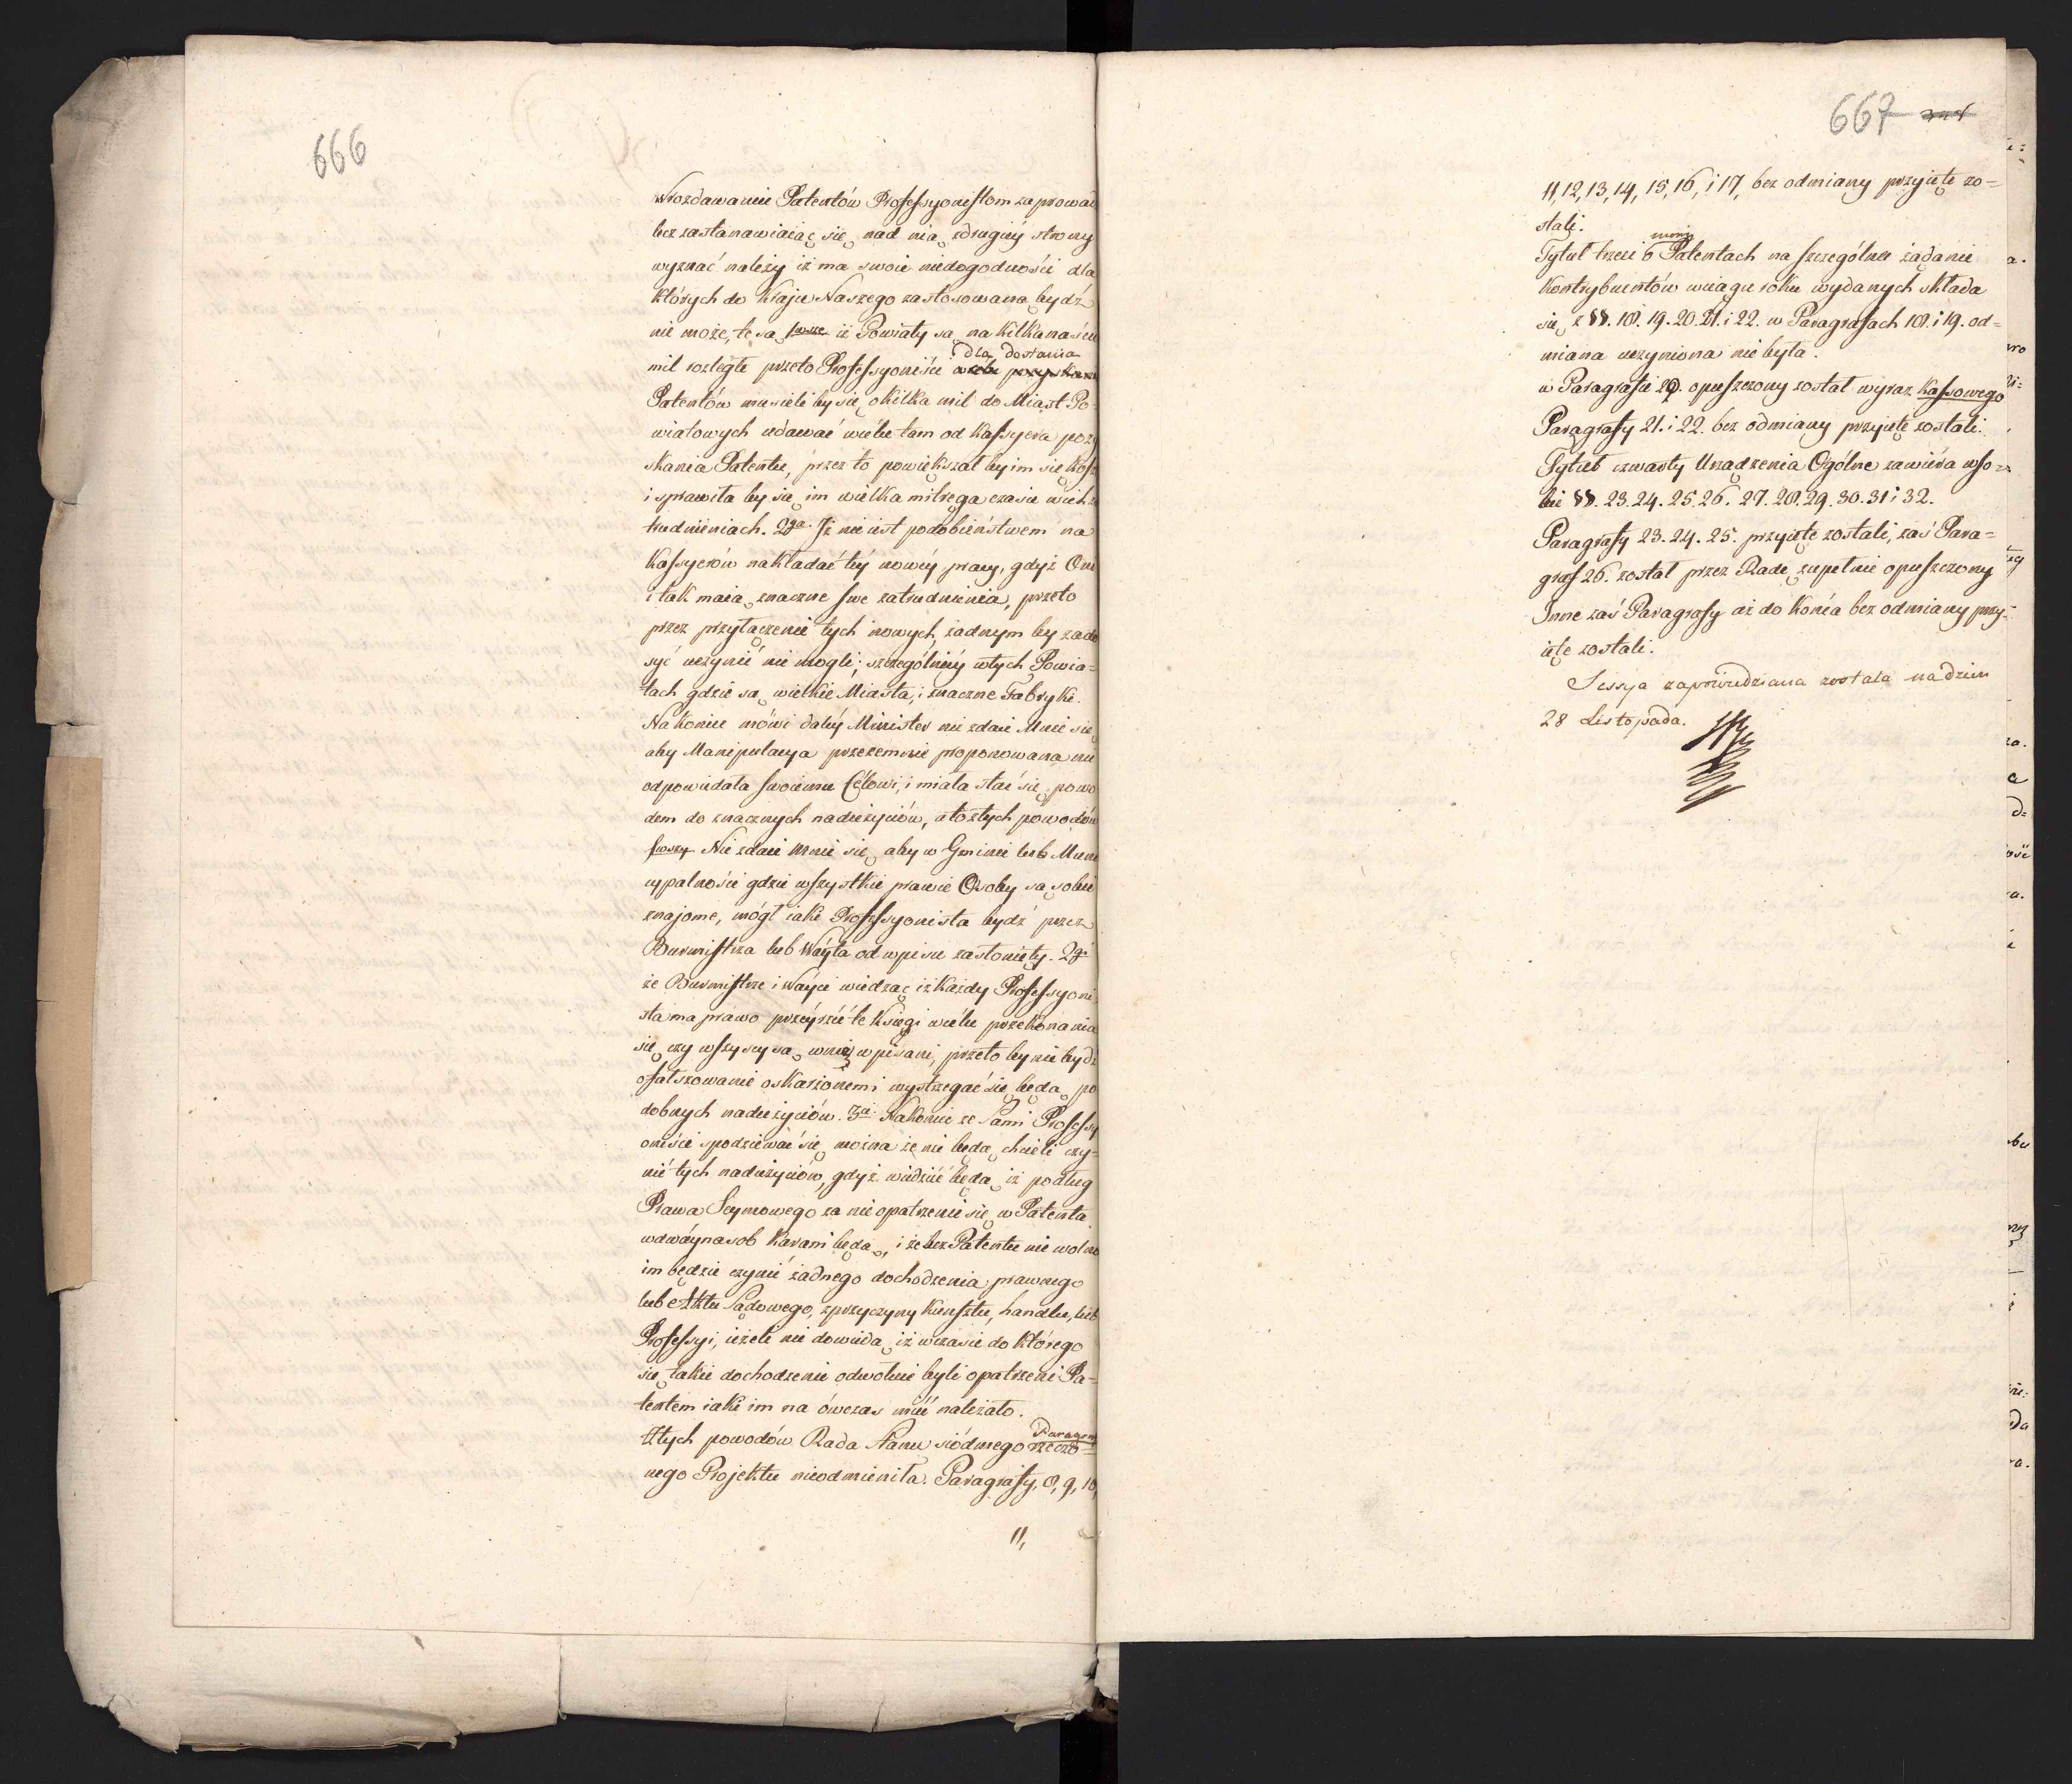 666
Wrozdawaniu Patentów Professyonistom zaprowad
lecz zastanawiaiąc się nad nią zdrugiéy strony
wyznać należy iż ma swoie niedogodności dla
których do Kraju Naszego zastosowana bydź
nie może, te są 1wsze iż Powiaty są na kilkanaście
dla dostania
mil rozległe przeto Professyoniści w celu pozyskania
Patentów musieliby się o kilka mil do Miast Po-
wiatowych udawać wcelu tam od Kassyera pozy
skania Patentu, przez to powiększał by im się Kosz
i sprawiła by się im wielka mitręga czasu wich za
trudnieniach. 2ga. Iż nie iest podobieństwem na
Kassyerów nakładać téy nowéy pracy, gdyż Oni
i tak maią znaczne swe zatrudnienia, przeto
przez przyłączenie tych nowych, żadnym by zado
syć uczynić nie mogli; szczególniéy wtych Powia=
tach gdzie są wielkie Miasta, i znaczne Fabryki.
Nakoniec mówi daléy Minister nie zdaie Mnie się
aby Manipulacya przezemnie proponowana nie
odpowiadała swoiemu Célowi, i miała stać się powo
dem do znacznych nadużyciów, a to ztych powodów
1wszy Nie zdaie mnie się aby w Gminie lub Muni
cypalności gdzie wszystkie prawie Osoby są sobie
znajome, mógł iaki Professyonista bydź przez
Burmistrza lub Wóyta od wpisu zasłonięty. 2gi
że Burmistrze i Wóyci wiedząc iż Każdy Professyoni
sta ma prawo przéyrzéć te Księgi wcelu przekonania
się czy wszyscy są wnię wpisani, przeto by nie bydź
o fałszowanie oskarżonemi wystrzegać się będą po
dobnych nadużyciów. 3ci Nakoniec że Sami Professy
oniści spodziewać się można że nie będą chcieli czy-
nić tych nadużyciów, gdyż widzić będą iż podług
Prawa Seymowego za nie opatrzenie się w Patenta
wdwóynasob karani będą, i że bez Patentu nie wolno
im będzie czynić żadnego dochodzenia prawnego
lub Aktu Sądowego, zprzyczyny Kunsztu, handlu, lub
Professyi, ieżeli nie dowiodą iż wczasie do którego
się takie dochodzenie odwołuie byli opatrzeni Pa-
tentem iaki im na ówczas mieć należało.
Paragrafu
Ztych powodów Rada Stanu siódmego rzeczo=
nego Projektu nieodmieniła. Paragrafy, 8, 9, 10,
11,
667
11, 12, 13, 14, 15, 16, i 17, bez odmiany przyięte zo=
stali.
Tytuł trzeci o Patentach na szczególne żądanie
Kontrybuentów wciągu roku wydanych składa
się z §§. 18. 19. 20. 21. i 22. w Paragrafach 18. i 19. od=
miana uczyniona nie była.
w Paragrafie 20. opuszczony został wyraz Kassowego
Paragrafy 21. i 22. bez odmiany przyięte zostali.
Tytuł czwarty Urządzenia Ogólne zawiéra wso=
bie §§. 23. 24. 25. 26. 27. 28. 29. 30. 31 i 32.
Paragrafy 23. 24. 25. przyięte zostali, zaś Para=
graf 26. został przez Radę zupełnie opuszczony
Inne zaś Paragrafy aż do Końca bez odmiany przy=
ięte zostali.
Sessya zapowiedziana została na dzien
28 Listopada.